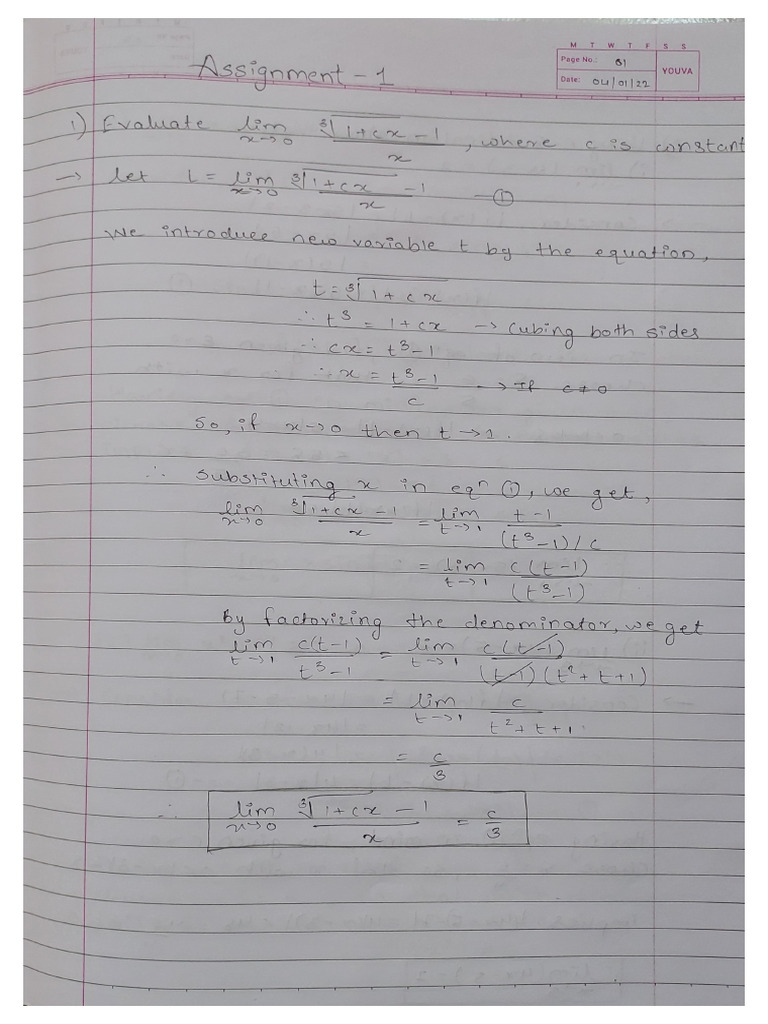 M T W T F S S
Page No.: 01
Date: 04/01/22
YOUVA
Assignment - 1
1) Evaluate lim x→0 (∛(1+cx) - 1)/x, where c is constant
→ let L = lim x→0 (∛(1+cx) - 1)/x — ①
We introduce new variable t by the equation,
t = ∛(1+cx)
∴ t³ = 1+cx → cubing both sides
∴ cx = t³-1
∴ x = (t³-1)/c → If c≠0
So, if x→0 then t→1.
∴ substituting x in eqⁿ ①, we get,
lim x→0 (∛(1+cx) - 1)/x = lim t→1 (t-1)/((t³-1)/c)
= lim t→1 c(t-1)/(t³-1)
By factorizing the denominator, we get
lim t→1 c(t-1)/(t³-1) = lim t→1 c(t-1)/((t-1)(t²+t+1))
= lim t→1 c/(t²+t+1).
= c/3
∴ lim x→0 (∛(1+cx) - 1)/x = c/3